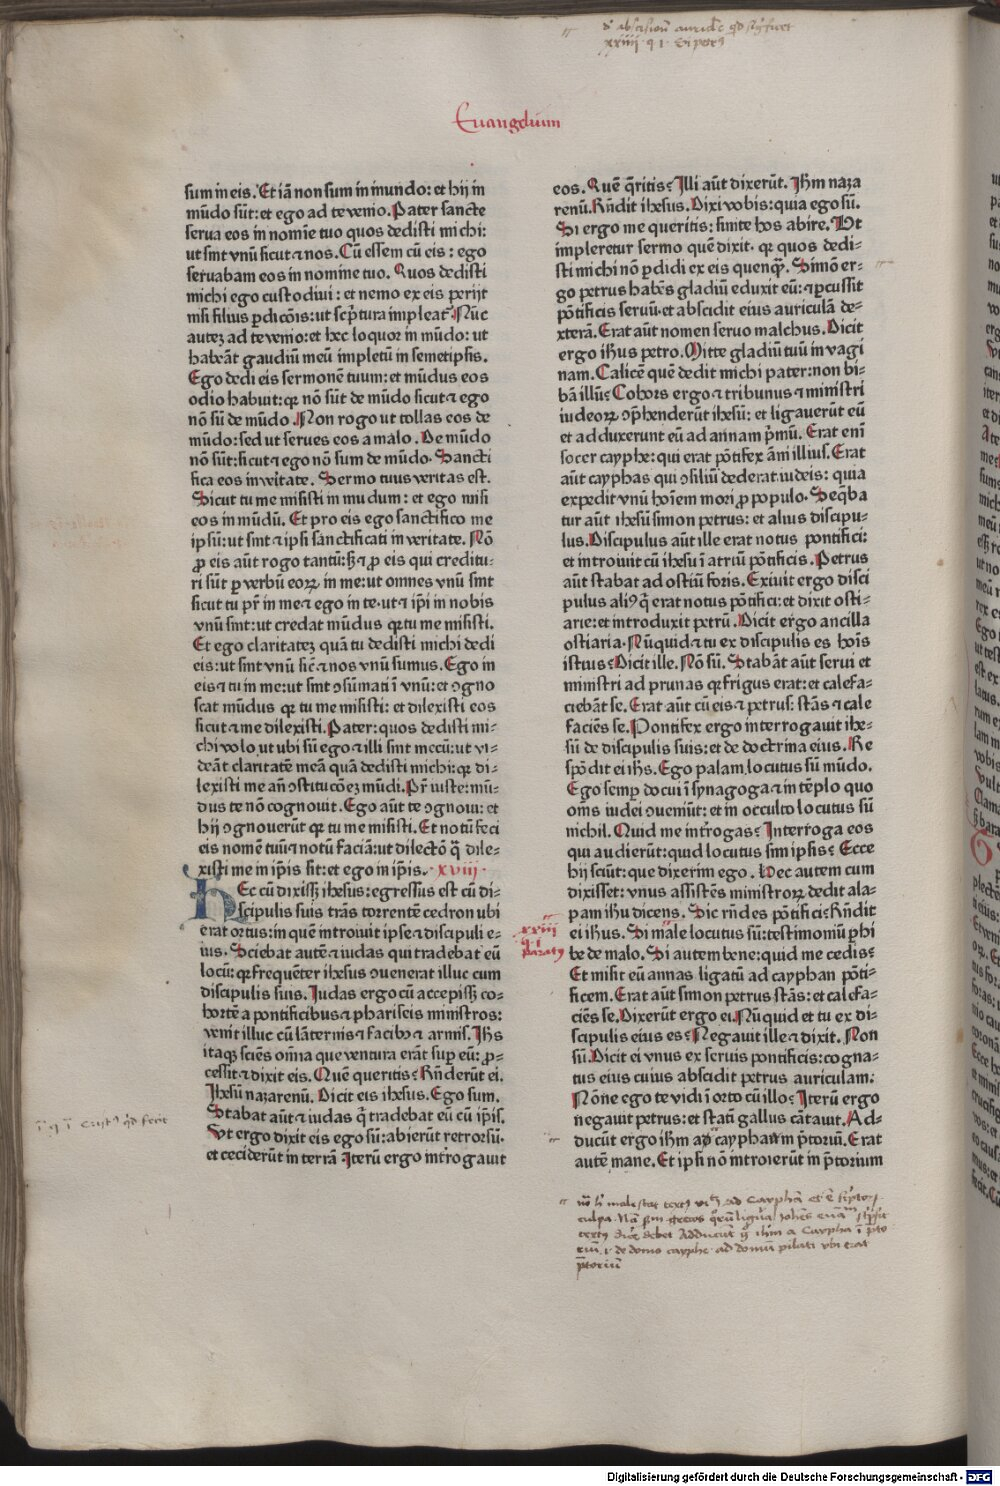 Euangeliuм
sum in eis. Et iã non sum in mundo: et hij in
mũdo sũt: et ego ad te venio. Pater sancte
serua eos in nomĩe tuo quos dedisti michi:
ut sint vnũ sicut ⁊ nos. Cũ essem cũ eis: ego
seruabam eos in nomine tuo. Quos dedisti
michi ego custodiui: et nemo ex eis perijt
nisi filius ꝑdicõis: ut scptura impleat᷑. Nũc
autez ad te venio: et hec loquor in mũdo: ut
habeãt gaudiũ meũ impletũ in semetipsis.
Ego dedi eis sermonẽ tuum: et mũdus eos
odio habuit: qꝛ nõ sũt de mũdo sicut ⁊ ego
nõ sũ de mũdo. Non rogo ut tollas eos de
mũdo: sed ut serues eos a malo. De mũdo
nõ sũt: sicut ⁊ ego nõ sum de mũdo. Sancti
fica eos in vĩtate. Sermo tuus veritas est.
Sicut tu me misisti in mudum: et ego misi
eos in mũdũ. Et pro eis ego sanctifico me
ipsũ: ut sint ⁊ ipsi sanctificati in veritate. Nõ
ꝓ eis aũt rogo tantũ: sꝫ ⁊ ꝓ eis qui creditu-
ri sũt ꝑ verbũ eoꝝ in me: ut omnes vnũ sint
sicut tu pr̃ in me ⁊ ego in te. ut ⁊ ip̃i in nobis
vnũ sint: ut credat mũdus qꝛ tu me misisti.
Et ego claritatez quã tu dedisti michi dedi
eis: ut sint vnũ sic̃ ⁊ nos vnũ sumus. Ego in
eis ⁊ tu in me: ut sint ꝯsũmati ĩ vnũ: et ꝯgno
scat mũdus qꝛ tu me misisti: et dilexisti eos
sicut ⁊ me dilexisti. Pater: quos dedisti mi-
chi volo ut ubi sũ ego ⁊ illi sint mecũ: ut vi-
deãt claritatẽ meã quã dedisti michi: qꝛ di-
lexisti me añ ꝯstitucõez mũdi. Pr̃ iuste: mũ-
dus te nõ cognouit. Ego aũt te ꝯgnoui: et
hij ꝯgnouerũt qꝛ tu me misisti. Et notũ feci
eis nomẽ tuũ ⁊ notũ faciã: ut dilectõ q̃ dile-
xisti me in ip̃is sit: et ego in ip̃is. xviii.
Hec cũ dixissꝫ ihesus: egressus est cũ di-
scipulis suis trãs torrentẽ cedron ubi
erat ortus: in quẽ introiuit ipse ⁊ discipuli e-
ius. Sciebat autẽ ⁊ iudas qui tradebat eũ
locũ: qꝛ frequẽter ihesus ꝯuenerat illuc cum
discipulis suis. Iudas ergo cũ accepissꝫ co-
hortẽ a pontificibus ⁊ phariseis ministros:
venit illuc cũ lãternis ⁊ facibꝰ ⁊ armis. Ihs̃
itaqꝫ sciẽs om̃ia que ventura erãt suꝑ eũ: ꝓ-
cessit ⁊ dixit eis. Quẽ queritis? Rñderũt ei.
Ihesũ nazarenũ. Dicit eis ihesus. Ego sum.
Stabat aũt ⁊ iudas q̃ tradebat eũ cũ ip̃is.
Vt ergo dixit eis ego sũ: abierũt retrorsũ.
et ceciderũt in terrã. Iterũ ergo introgauit
eos. Quẽ q̃ritis? Illi aũt dixerũt. Ihm̃ naza
renũ. Rñdit ihesus. Dixi vobis: quia ego sũ.
Si ergo me queritis: sinite hos abire. Ut
impleretur sermo quẽ dixit. qꝛ quos dedi-
sti michi nõ ꝑdidi ex eis quenqꝫ. Simõ er-
go petrus habẽs gladiũ eduxit eũ: ⁊ ꝑcussit
põtificis seruũ. et abscidit eius auriculã de-
xterã. Erat aũt nomen seruo malchus. Dicit
ergo ih̃us petro. Mitte gladiũ tuũ in vagi
nam. Calicẽ quẽ dedit michi pater: non bi-
bã illũ? Cohors ergo ⁊ tribunus ⁊ ministri
iudeoꝝ ꝯp̃henderũt ihesũ: et ligauerũt eũ
et adduxerunt eũ ad annam p̃mũ. Erat enĩ
socer cayphe: qui erat põtifex ãni illius. Erat
aũt cayphas qui ꝯsiliũ dederat iudeis: quia
expedit vnũ hoĩem mori ꝓ populo. Seq̃ba
tur aũt ihesũ simon petrus: et alius discipu-
lus. Discipulus aũt ille erat notus pontifici:
et introiuit cũ ihesu ĩ atriũ põtificis. Petrus
aũt stabat ad ostiũ foris. Exiuit ergo disci
pulus aliꝰ q̃ erat notus põtifici: et dixit osti-
arie: et introduxit petrũ. Dicit ergo ancilla
ostiaria. Nũquid ⁊ tu ex discipulis es hoĩs
istius? Dicit ille. Nõ sũ. Stabãt aũt serui et
ministri ad prunas qꝛ frigus erat: et calefa-
ciebãt se. Erat aũt cũ eis ⁊ petrus: stãs ⁊ cale
faciẽs se. Pontifex ergo interrogauit ihe-
sũ de discipulis suis: et de doctrina eius. Re
spõdit ei ihs̃. Ego palam locutus sũ mũdo.
Ego semꝑ docui ĩ synagoga ⁊ in tẽplo quo
om̃s iudei ꝯueniũt: et in occulto locutus sũ
nichil. Quid me int̃rogas? Interroga eos
qui audierũt: quid locutus sim ipsis? Ecce
hij sciũt: que dixerim ego. Hec autem cum
dixisset: vnus assistẽs ministroꝝ dedit ala-
pam ih̃u dicens. Sic rñdes põtifici? Rñdit
ei ih̃us. Si male locutus sũ: testimoniũ ꝑhi
be de malo. Si autem bene: quid me cedis?
Et misit eũ annas ligatũ ad cayphan põti-
ficem. Erat aũt simon petrus stãs: et calefa-
ciẽs se. Dixerũt ergo ei. Nũquid et tu ex di-
scipulis eius es? Negauit ille ⁊ dixit. Non
sũ. Dicit ei vnus ex seruis pontificis: cogna-
tus eius cuius abscidit petrus auriculam:
Nõne ego te vidi ĩ orto cũ illo? Iterũ ergo
negauit petrus: et statĩ gallus cãtauit. Ad-
ducũt ergo ih̃m ad cayphan in p̃toriũ. Erat
autẽ mane. Et ipsi nõ introierũt in p̃torium
xxiii
q i
paratꝰ
Digitalisierung gefördert durch die Deutsche Forschungsgemeinschaft - DFG